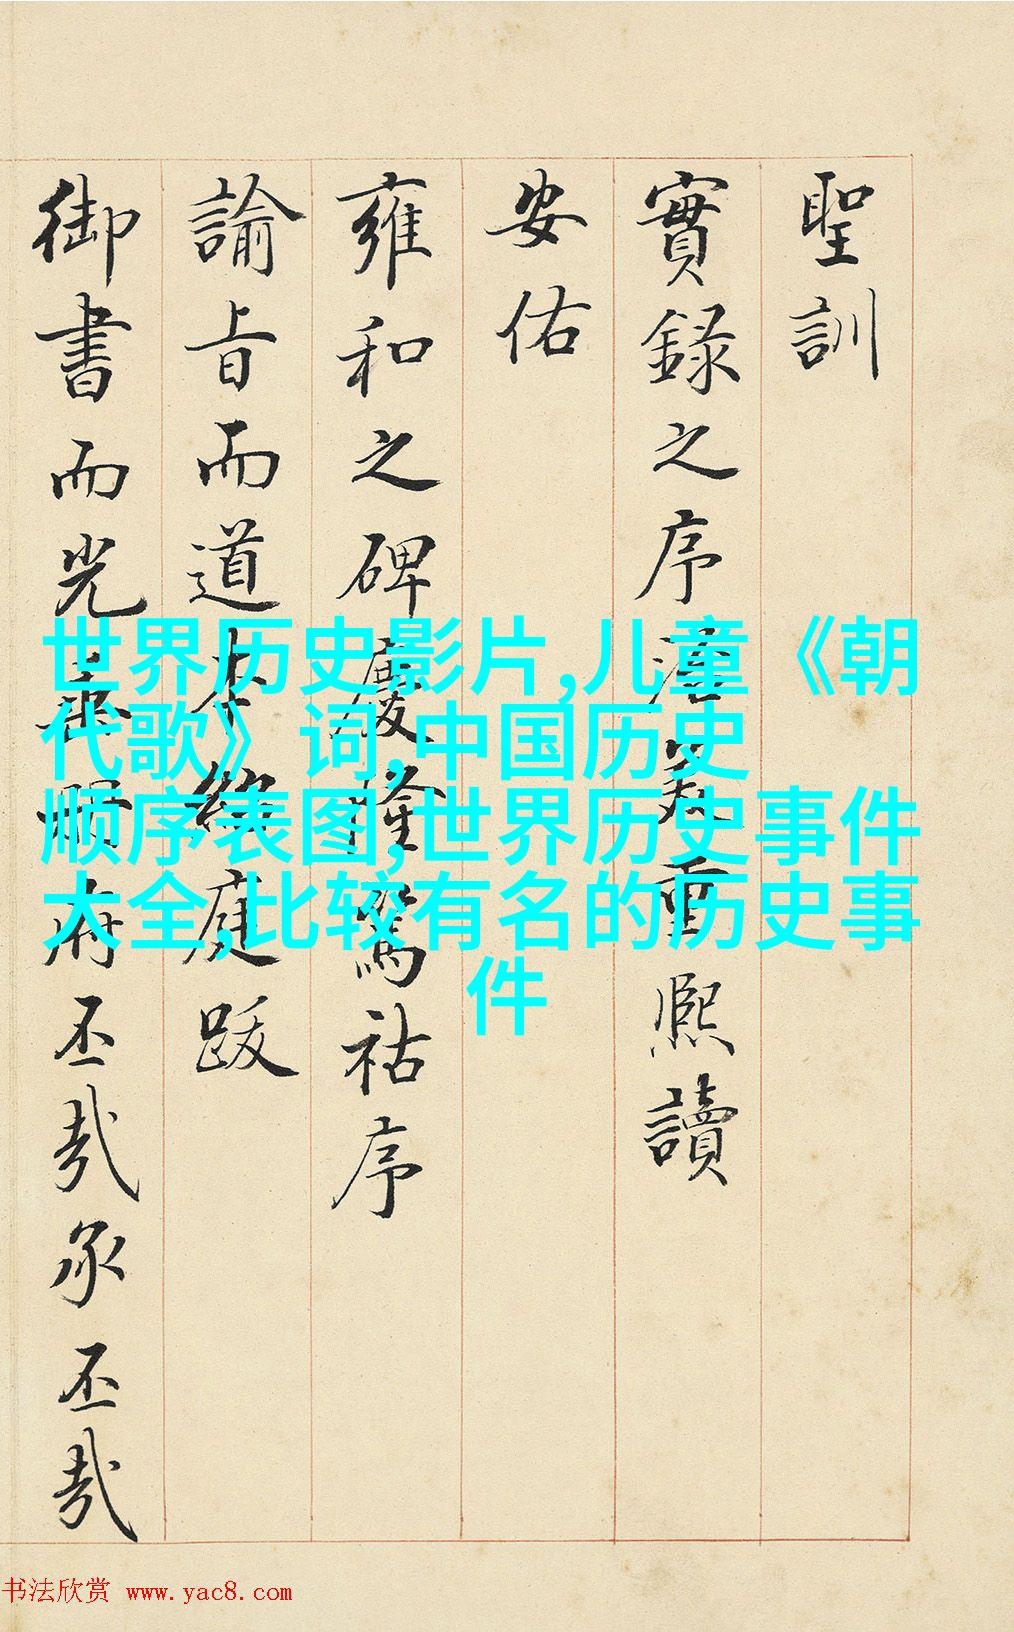 聖訓
實錄之序重熙讀
安佑
雍和之碑慶隆篤祜序
諭旨而道本庭跋
御書而光府丕哉承丕哉
世界历史影片,儿童《朝
代歌》词,中国历史
顺序表图,世界历史事件
大全,比较有名的历史事
件
书法欣赏 www.yac8.com